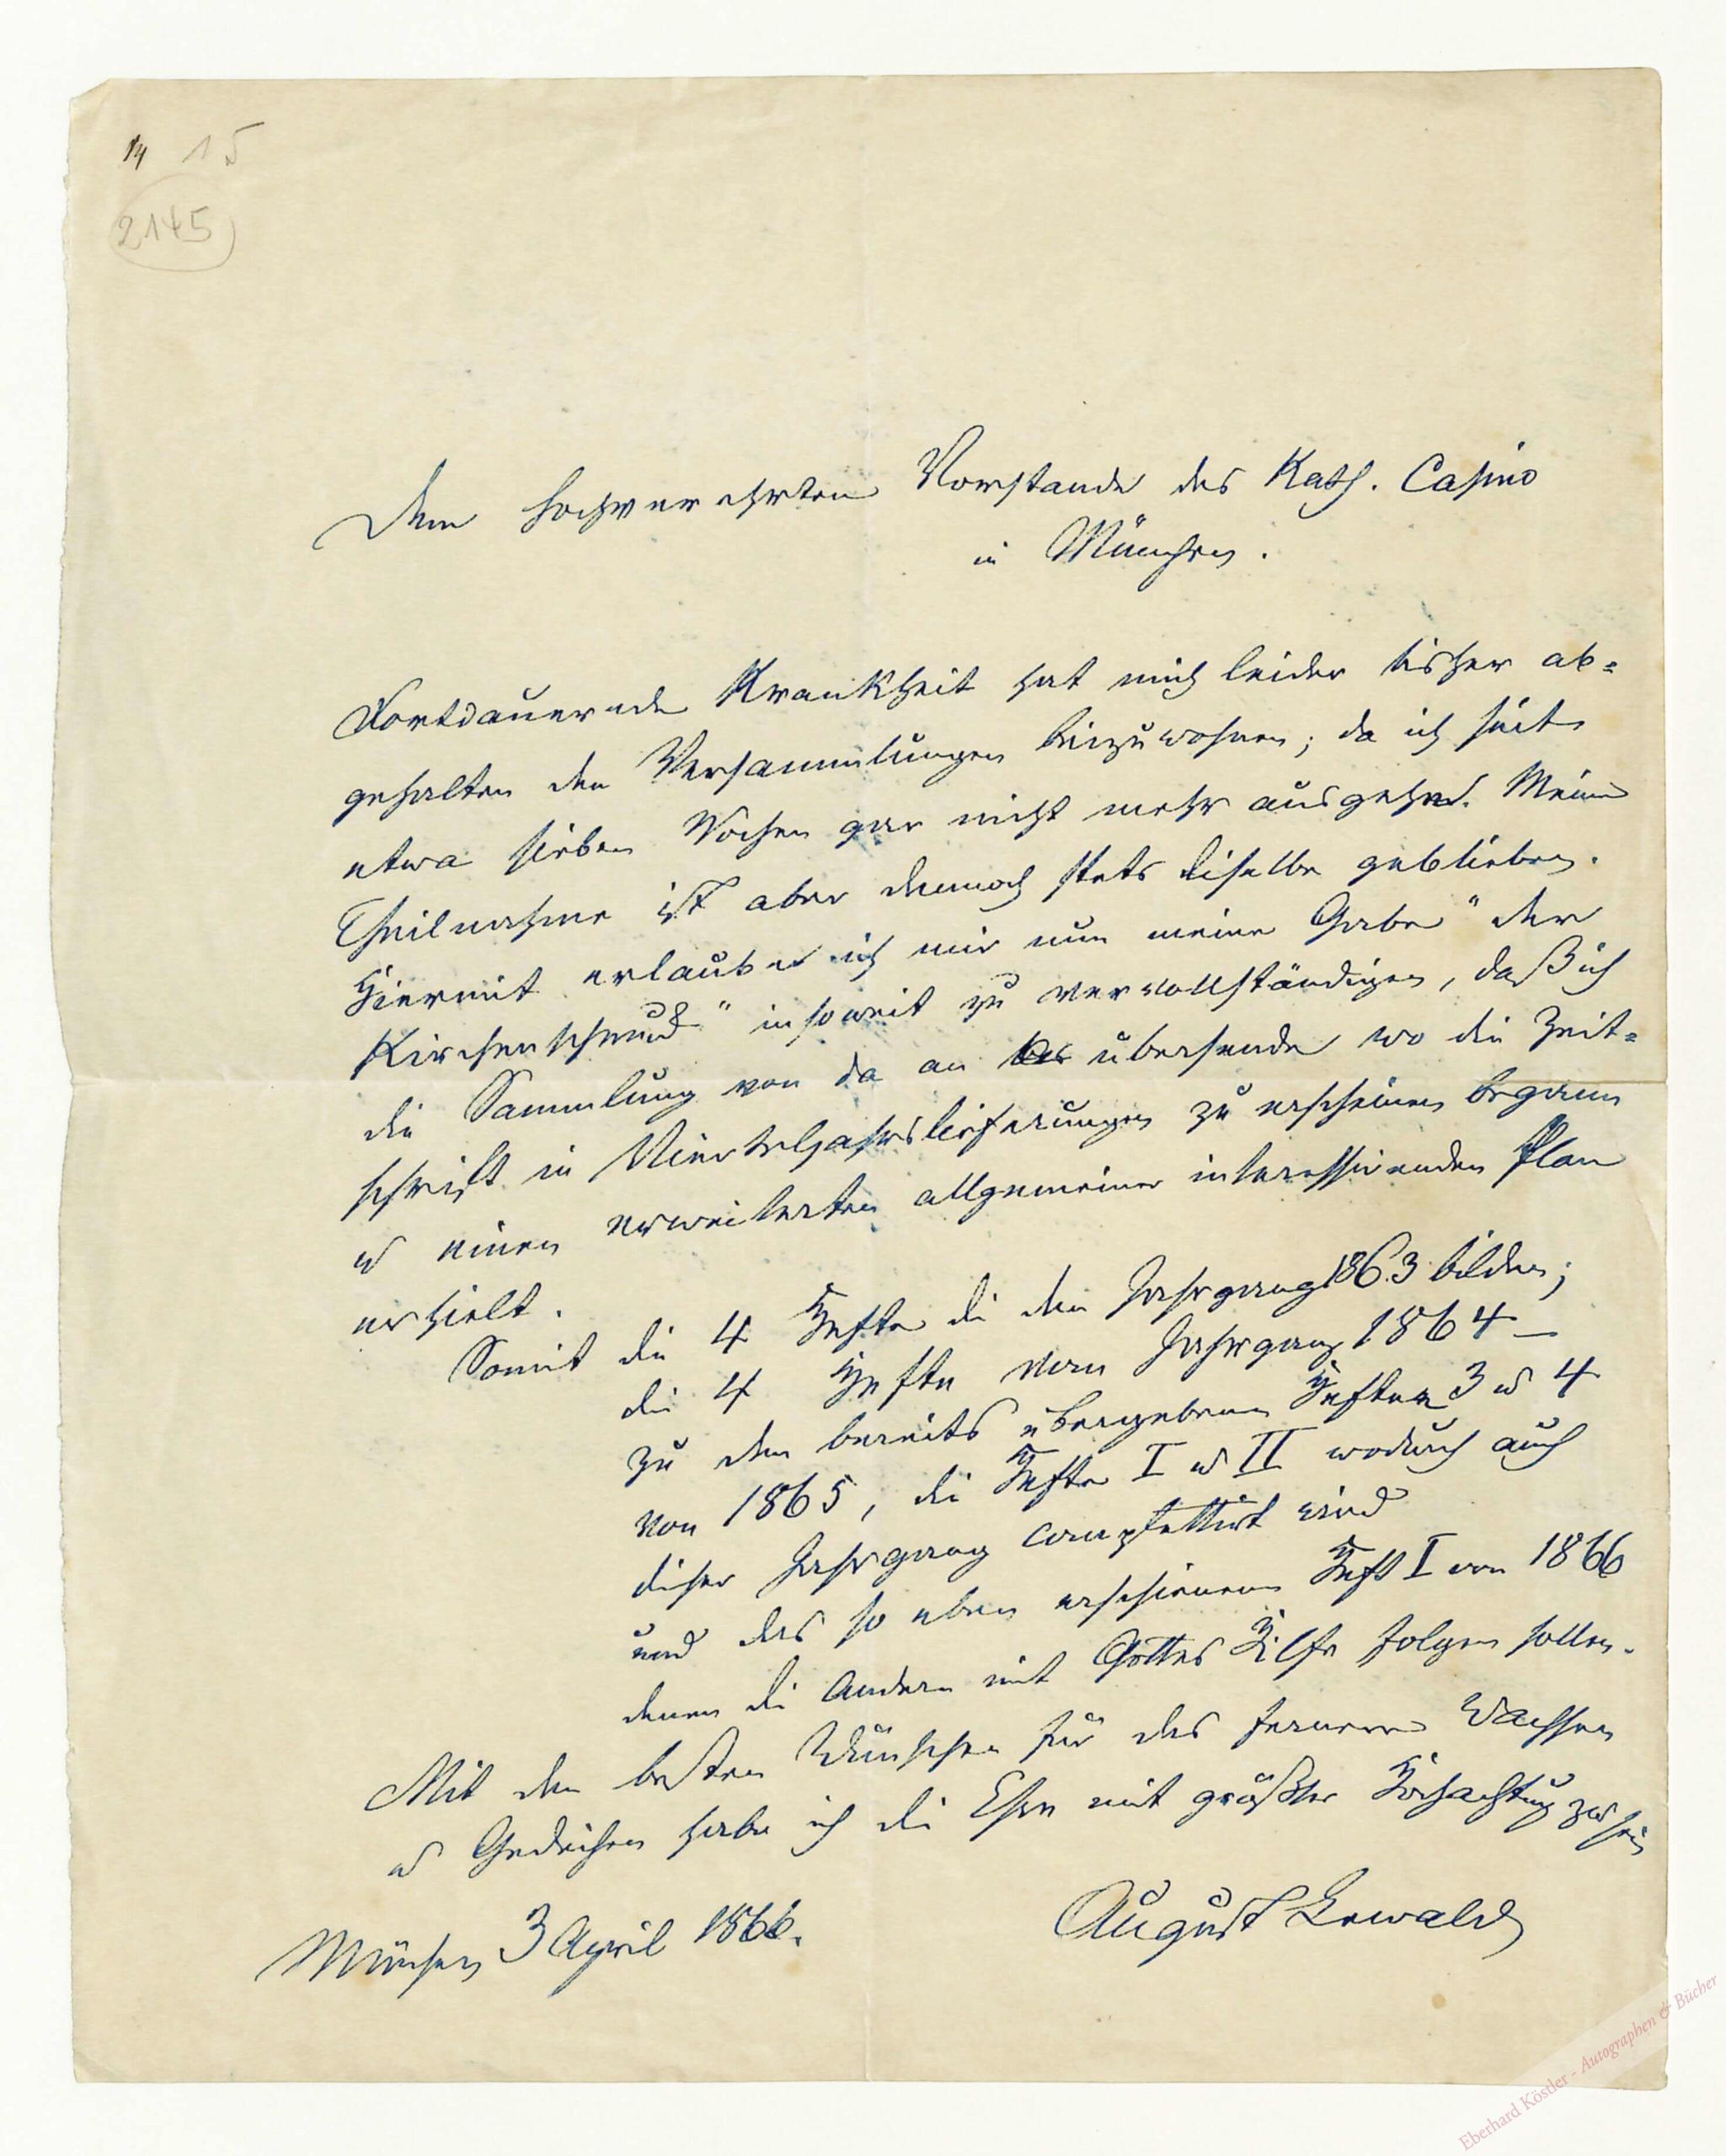 14 15
2145
Dem hochverehrten Vorstande des Kath. Casino
in München.
Fortdauernde Krankheit hat mich leider bisher ab=
gehalten den Versammlungen beizuwohnen; da ich seit
etwa sieben Wochen gar nicht mehr ausgehe. Meine
Theilnahme ist aber dennoch stets dieselbe geblieben.
Hiermit erlaube ich mir nun meine Gabe "der
Kirchenschmuck" insoweit zu vervollständigen, daß ich
die Sammlung von da an übersende wo die Zeit=
schrift in Vierteljahrslieferungen zu erscheinen begann
u einen erweiterten allgemeiner interessirenden Plan
erhielt.
Somit die 4 Hefte die den Jahrgang 1863 bilden;
die 4 Hefte vom Jahrgang 1864 —
zu den bereits übergebenen Heften 3 u 4
von 1865, die Hefte I u II wodurch auch
dieser Jahrgang complettirt wird
und das so eben erschienene Heft I von 1866
denen die Andern mit Gottes Hilfe folgen sollen.
Mit den besten Wünschen für das fernere Wachsen
u Gedeihen habe ich die Ehre mit größter Hochachtung zu sein
August Lewald
München 3 April 1866.
Eberhard Köstler - Autographen & Bücher